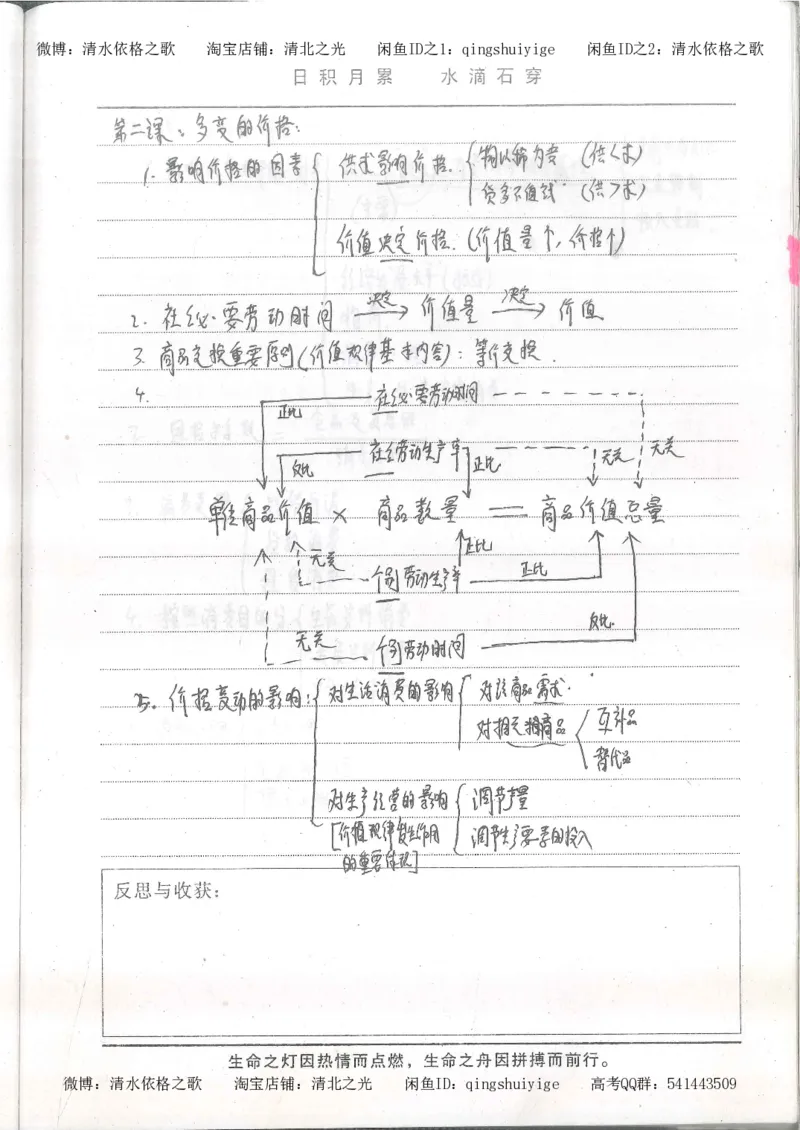 微博：清水依格之歌 淘宝店铺：清北之光 闲鱼ID之1：qingshuiyige 闲鱼ID之2：清水依格之歌
日积月累 水滴石穿
第二课：多变的价格：
1. 影响价格的因素
供求影响价格.
物以稀为贵 (供<求)
货多不值钱 (供>求)
价值决定价格. (价值量个, 价格个)
2. 社会必要劳动时间 决定 价值量 决定 价值
3. 商品交换重要原则(价值规律基本内容)：等价交换.
4.
社会必要劳动时间
正比
社会劳动生产率
反比 正比 无关 无关
单位商品价值 × 商品数量 = 商品价值总量
无关 正比
个别劳动生产率 正比
无关 个别劳动时间 反比
5. 价格变动的影响：
对生活消费的影响
对该商品需求.
对相关商品
互补品
替代品
对生产经营的影响
[价值规律发生作用
的重要体现]
调节产量
调节生产要素的投入
反思与收获：
生命之灯因热情而点燃，生命之舟因拼搏而前行。
微博：清水依格之歌 淘宝店铺：清北之光 闲鱼ID：qingshuiyige 高考QQ群：541443509